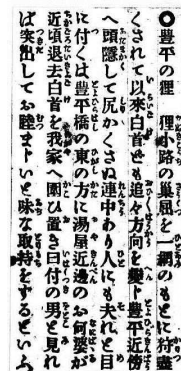 ◎豊平の狸　狸小路の巣屈を一網のもとに狩盡
くされて以來白首ども追々方向を變じ豊平近傍
へ頭隠して尻かくさぬ連中あり人にも夫れと目
に付くは豊平橋の東の方に湯屋近邊のお何婆が
近頃退去白首を我家へ圍ひ置き曰付の男と見れ
ば突出してお睦まじいと味な取持をするといふ